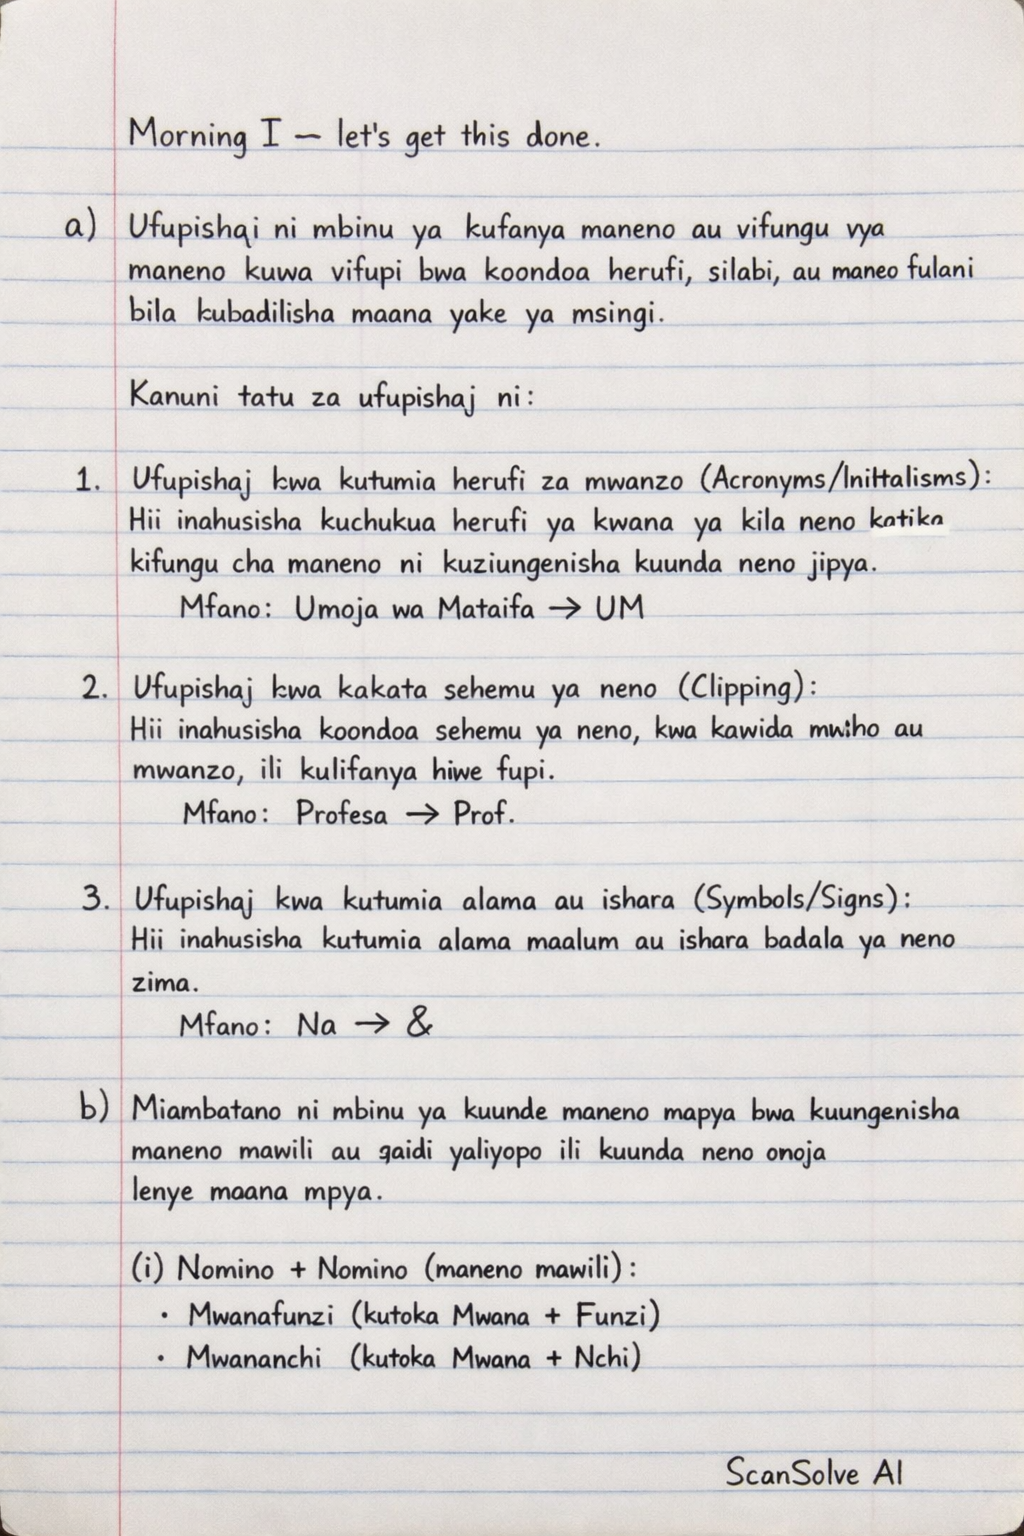 Morning I — let's get this done.
a) Ufupishqi ni mbinu ya kufanya maneno au vifungu vya
maneno kuwa vifupi bwa koondoa herufi, silabi, au maneo fulani
bila kubadilisha maana yake ya msingi.
Kanuni tatu za ufupishaj ni:
1. Ufupishaj kwa kutumia herufi za mwanzo (Acronyms/Inittalisms):
Hii inahusisha kuchukua herufi ya kwana ya kila neno katika
kifungu cha maneno ni kuziungenisha kuunda neno jipya.
Mfano: Umoja wa Mataifa → UM
2. Ufupishaj kwa kakata sehemu ya neno (Clipping):
Hii inahusisha koondoa sehemu ya neno, kwa kawida mwiho au
mwanzo, ili kulifanya hiwe fupi.
Mfano: Profesa → Prof.
3. Ufupishaj kwa kutumia alama au ishara (Symbols/Signs):
Hii inahusisha kutumia alama maalum au ishara badala ya neno
zima.
Mfano: Na → &
b) Miambatano ni mbinu ya kuunde maneno mapya bwa kuungenisha
maneno mawili au gaidi yaliyopo ili kuunda neno onoja
lenye maana mpya.
(i) Nomino + Nomino (maneno mawili):
• Mwanafunzi (kutoka Mwana + Funzi)
• Mwananchi (kutoka Mwana + Nchi)
ScanSolve AI